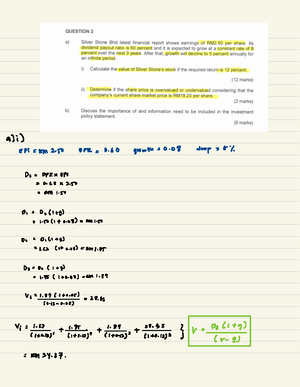 QUESTION 2
a) Silver Stone Bhd latest financial report shows earnings of RM2.50 per share. Its
dividend payout ratio is 60 percent and it is expected to grow at a constant rate of 8
percent over the next 3 years. After that, growth will decline to 5 percent annually for
an infinite period.
i) Calculate the value of Silver Stone's stock if the required return is 12 percent.
(12 marks)
ii) Determine if the share price is overvalued or undervalued considering that the
company's current share market price is RM18.20 per share.
(2 marks)
b) Discuss the importance of and information need to be included in the investment
policy statement.
(6 marks)
a)i)
EPS = RM 2.50 DPR = 0.60 growth = 0.08 drop > 5%
D0 = DPR × EPS
= 0.60 × 2.50
= RM 1.50
D1 = D0 (1+g)
= 1.50 (1+0.08) = RM 1.62
= D1 (1+g)
= RM 1.75
D3 = D2 (1+g)
= 1.75 (1+0.08) = RM 1.89
V3 = 1.89 (1+0.05)
= 28.35
V = D3 (1+g)
(r-g)
= RM 24.27.